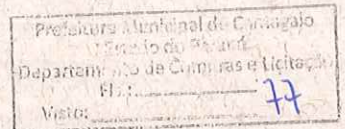 Prefeitura Municipal de Cantagalo
Estado do Paraná
Departamento de Compras e Licitação
Fl.: 77
Visto: